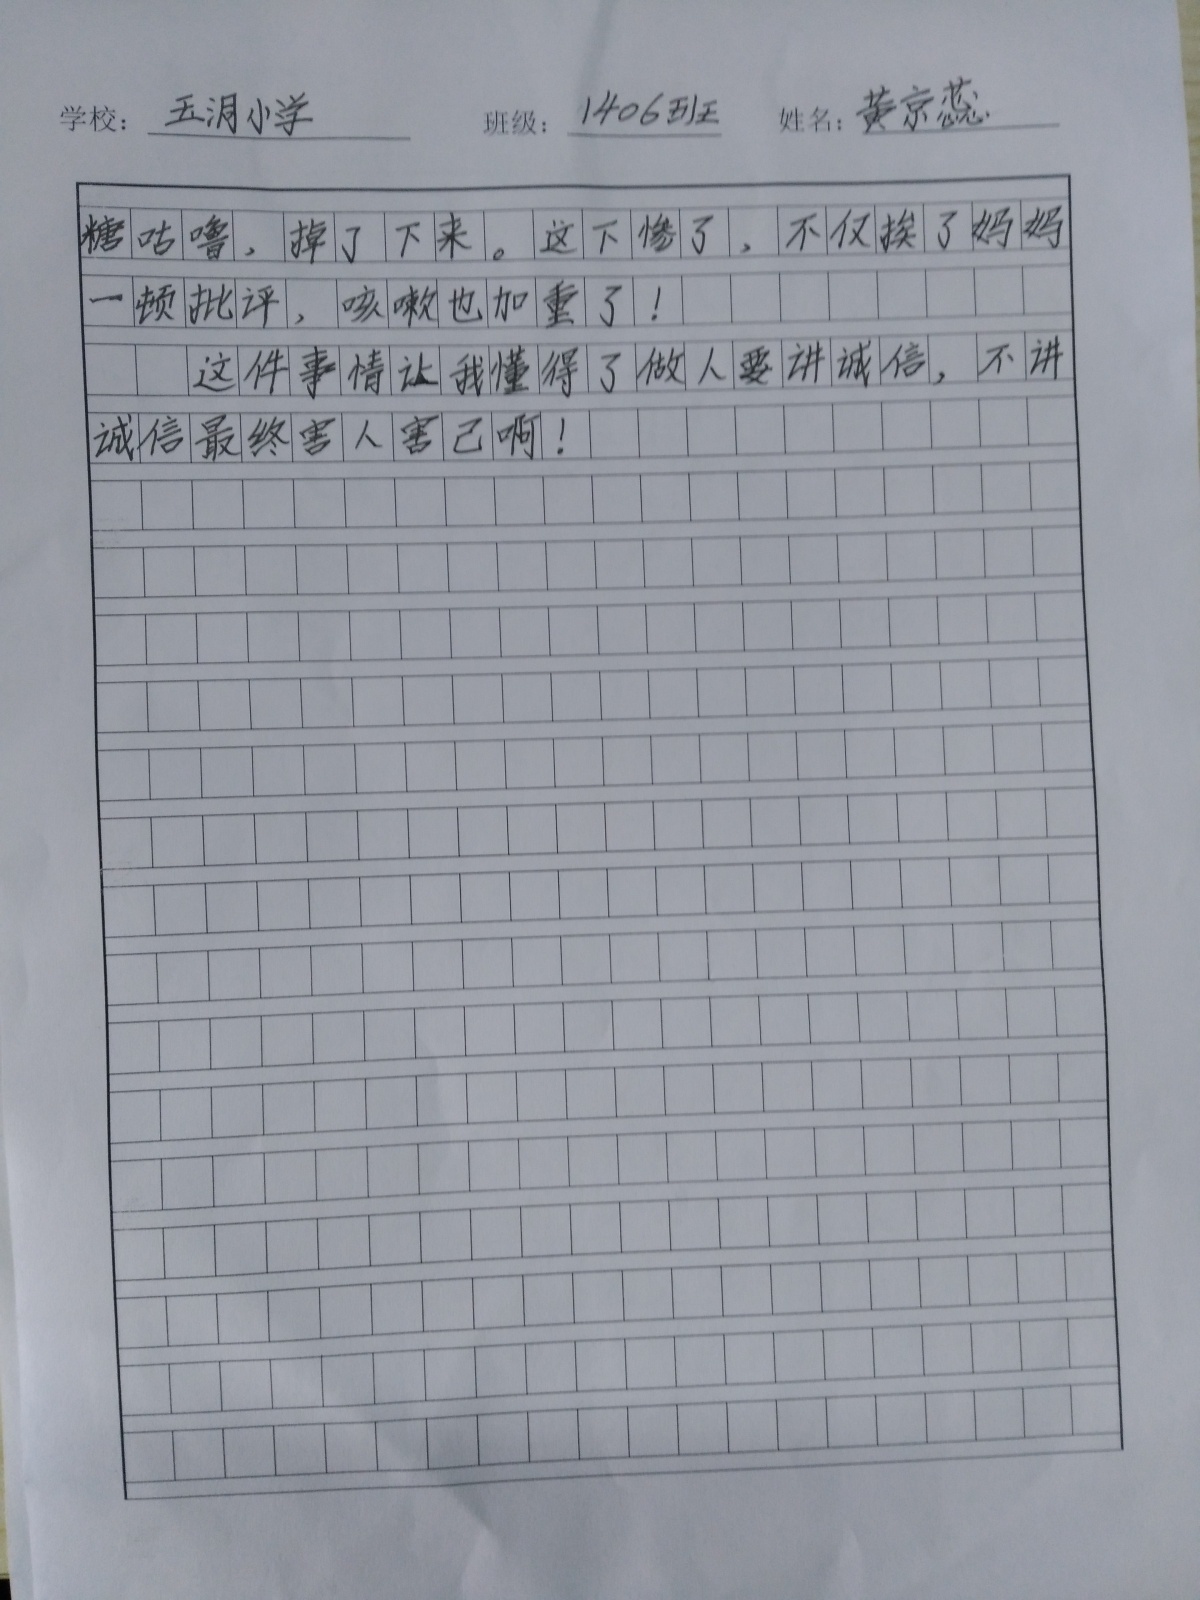 学校： 玉涓小学 班级： 1406班 姓名： 黄京蕊
糖咕噜，掉了下来。这下惨了，不仅挨了妈妈
一顿批评，咳嗽也加重了！
这件事情让我懂得了做人要讲诚信，不讲
诚信最终害人害己啊！